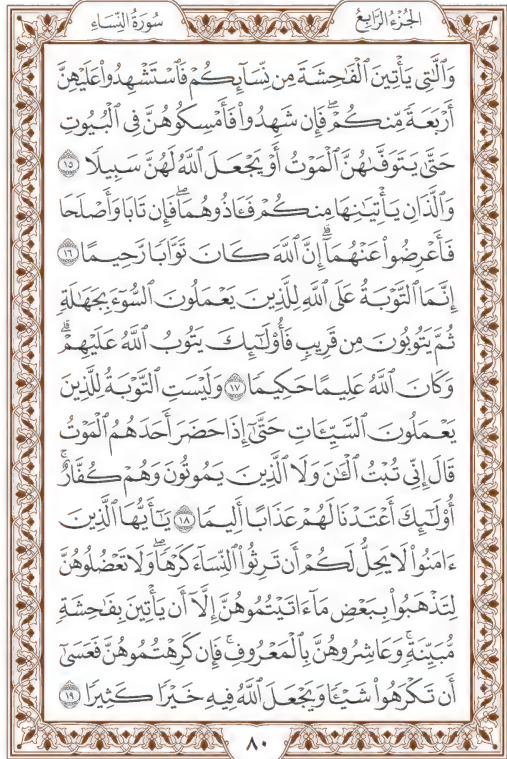 الجُزْءُ الرَّابِعُ
سُورَةُ النِّسَاءِ
وَٱلَّٰتِى يَأْتِينَ ٱلْفَٰحِشَةَ مِن نِّسَآئِكُمْ فَٱسْتَشْهِدُوا۟ عَلَيْهِنَّ
أَرْبَعَةً مِّنكُمْ ۖ فَإِن شَهِدُوا۟ فَأَمْسِكُوهُنَّ فِى ٱلْبُيُوتِ
حَتَّىٰ يَتَوَفَّىٰهُنَّ ٱلْمَوْتُ أَوْ يَجْعَلَ ٱللَّهُ لَهُنَّ سَبِيلًا ١٥
وَٱلَّذَانِ يَأْتِيَٰنِهَا مِنكُمْ فَـَٔاذُوهُمَا ۖ فَإِن تَابَا وَأَصْلَحَا
فَأَعْرِضُوا۟ عَنْهُمَآ ۗ إِنَّ ٱللَّهَ كَانَ تَوَّابًا رَّحِيمًا ١٦
إِنَّمَا ٱلتَّوْبَةُ عَلَى ٱللَّهِ لِلَّذِينَ يَعْمَلُونَ ٱلسُّوٓءَ بِجَهَٰلَةٍ
ثُمَّ يَتُوبُونَ مِن قَرِيبٍ فَأُو۟لَٰٓئِكَ يَتُوبُ ٱللَّهُ عَلَيْهِمْ ۗ
وَكَانَ ٱللَّهُ عَلِيمًا حَكِيمًا ١٧ وَلَيْسَتِ ٱلتَّوْبَةُ لِلَّذِينَ
يَعْمَلُونَ ٱلسَّيِّـَٔاتِ حَتَّىٰٓ إِذَا حَضَرَ أَحَدَهُمُ ٱلْمَوْتُ
قَالَ إِنِّى تُبْتُ ٱلْـَٰٔنَ وَلَا ٱلَّذِينَ يَمُوتُونَ وَهُمْ كُفَّارٌ ۚ
أُو۟لَٰٓئِكَ أَعْتَدْنَا لَهُمْ عَذَابًا أَلِيمًا ١٨ يَٰٓأَيُّهَا ٱلَّذِينَ
ءَامَنُوا۟ لَا يَحِلُّ لَكُمْ أَن تَرِثُوا۟ ٱلنِّسَآءَ كَرْهًا ۖ وَلَا تَعْضُلُوهُنَّ
لِتَذْهَبُوا۟ بِبَعْضِ مَآ ءَاتَيْتُمُوهُنَّ إِلَّآ أَن يَأْتِينَ بِفَٰحِشَةٍ
مُّبَيِّنَةٍ ۚ وَعَاشِرُوهُنَّ بِٱلْمَعْرُوفِ ۚ فَإِن كَرِهْتُمُوهُنَّ فَعَسَىٰٓ
أَن تَكْرَهُوا۟ شَيْـًٔا وَيَجْعَلَ ٱللَّهُ فِيهِ خَيْرًا كَثِيرًا ١٩
٨٠